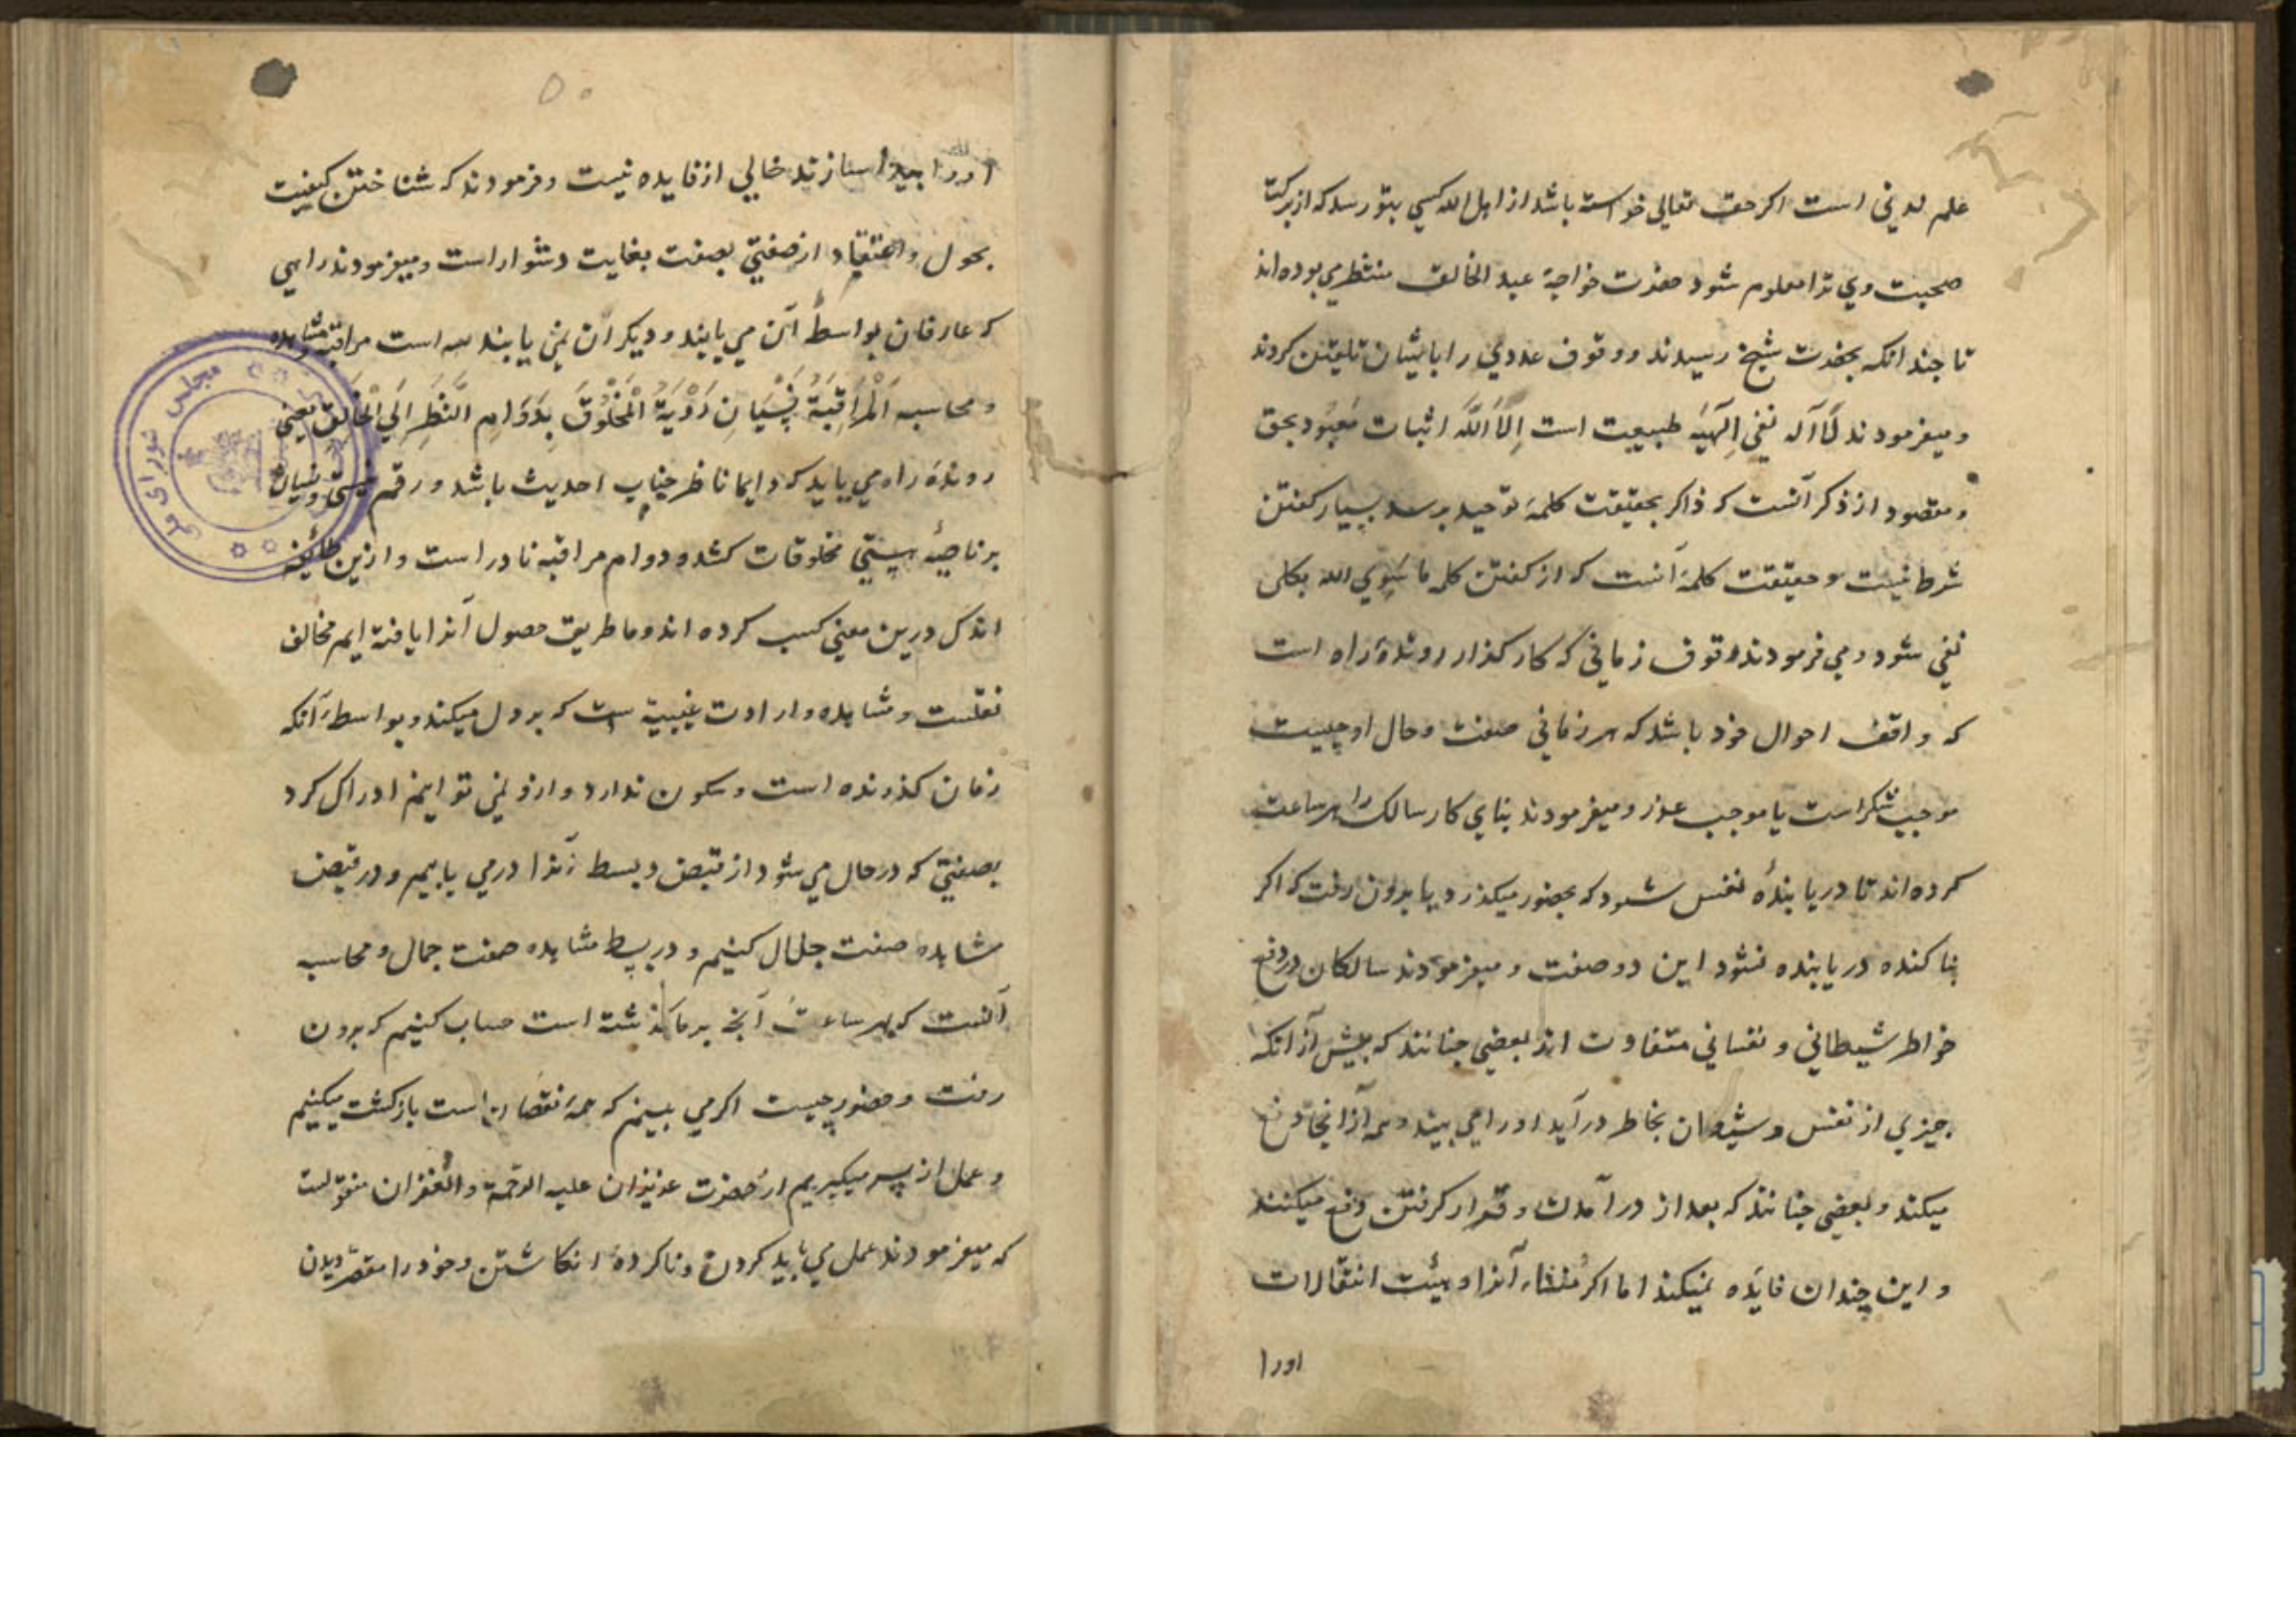 علم لدنی است اکر حق تعالی خواسته باشد از اهل الله کسی بتو رسد که از برکت
صحبت وي ترا معلوم شود حضرت خواجهٔ عبد الخالق منتظر می بوده اند
تا جند انکه بحضرت شیخ رسیدند و وقوف عددي را بایشان تلقین کردند
و میفرمودند لَا آله نفی اِلٓهیَه طبیعیت است اِلَّا اَللَّه اثبات مَعبُود بحق
و مقصود از ذکر آنست که ذاکر بحقیقت کلمهٔ توحید برسد بسیار کفتن
شرط نیست و حقیقت کلمهٔ آنست که از کفتن کلمه ما سِوَي الله بکلی
نفی شود و می فرمودند وقوف زمانی که کار کذار روندهٔ راه است
که واقف احوال خود باشد که هر زمانی صفت و حال او چیست
موجب شکر است یا موجب عذر و میفرمودند بنای کار سالک را بر ساعت
کرده اند تا دریا بندهٔ نفس شود که بحضور میکذرد یا برون رفت که اکر
بنا کنده دریا بنده نشود این دو صفت و میفرمودند سالکان در دفع
خواطر شیطانی و نفسانی متفاوت اند بعضی جنانند که بیش از انکه
جیزی از نفس و شیطان بخاطر درآید اورا می بیند و هم آز انجا دفع
میکند و بعضی جنانند که بعد از درآمدن و قرار کرفتن دفع میکنند
و این چندان فایَده نمیکند اما اکر مُنشاء آنرا و هیئت انتقالات
اورا
۵۰
اورا بیدا سازند خالی از فایده نیست و فرمودند که شناختن کیفیت
بحول و اعتقاد از صفتی بصفت بغایت دشوار است و میفرمودند راهی
که عارفان بواسطهٔ آن می یابند و دیکران نمی یابند سه است مراقبه و مشاهده
و محاسبه اَلْمَرَاقِبَةُ نِسْیَانِ رُؤْیَةُ الْمَخْلُوقَ بِدَوَامِ النَّظَرِ اِلَی الْخَالِق یعنی
روندهٔ راه می باید که دایما ناظر جناب احدیت باشد و رقم نیستی و نسیان
بر ناصیهٔ هستی مخلوقات کشد و دوام مراقبه نادر است و ازین طائفه
اندک درین معنی کسب کرده اند و ما طریق حصول آنرا یافته ایم مخالف
نفلست و مشاهده واردات غیبیة است که بر دل میکند و بواسطهٔ آنکه
زمان کذرنده است و سکون ندارد و ارو نمی توانیم ادراک کرد
بصفتی که در حال می شود از قبض و بسط آنرا در می یابیم و در قبض
مشاهده صفت جلال کنیم و در بسط مشاهده صفت جمال و محاسبه
آنست که بهر ساعت آنچه بر ما کذشته است حساب کنیم که برون
رفت و حضور چیست اکر می بینیم که همه نقصان است بازکشت میکنیم
و عمل از سر میکیریم از حضرت عزیزان علیه الرّحمة و الغفران منقولست
که میفرمودند عمل می باید کردن و ناکرده انکاشتن و خود را مقصّر دیدن
مجلس شورای ملی